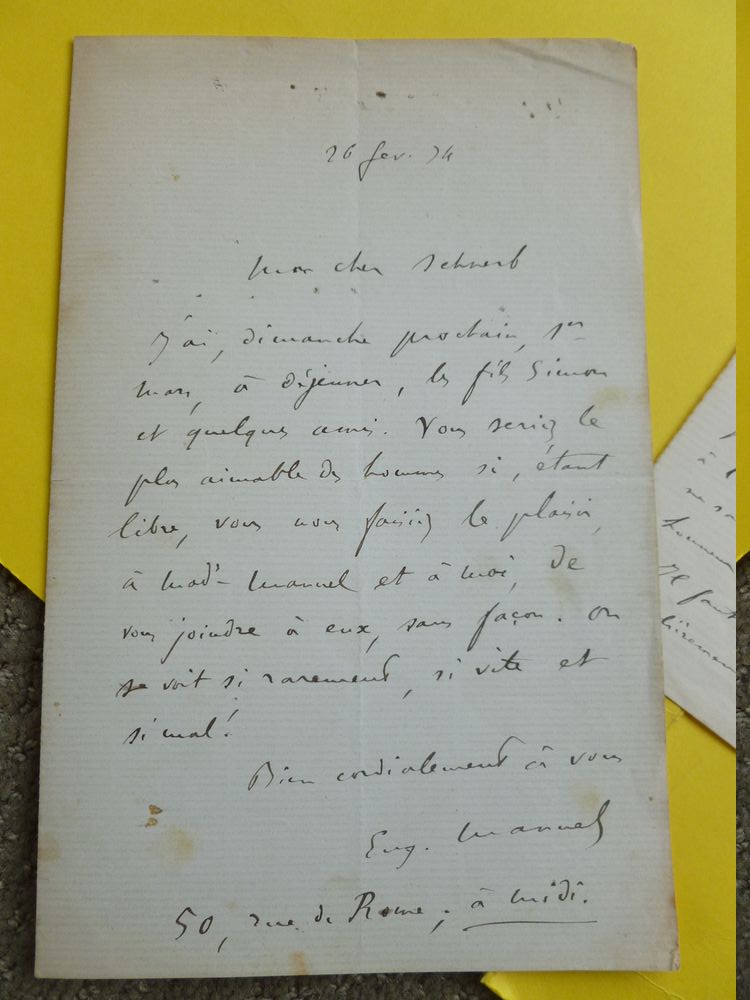 26 fev. 74
Mon cher Schnerb
J'ai, dimanche prochain, 1er
mars, à déjeuner, les fils Simon
et quelques amis. Vous seriez le
plus aimable des hommes si, étant
libre, vous nous faisiez le plaisir,
à Mad'e Manuel et à moi, de
vous joindre à eux, sans façon. On
se voit si rarement, si vite et
si mal!
Bien cordialement à vous
Eug. Manuel
50, rue de Rome, à midi.
à
ne
hommes
Il faut